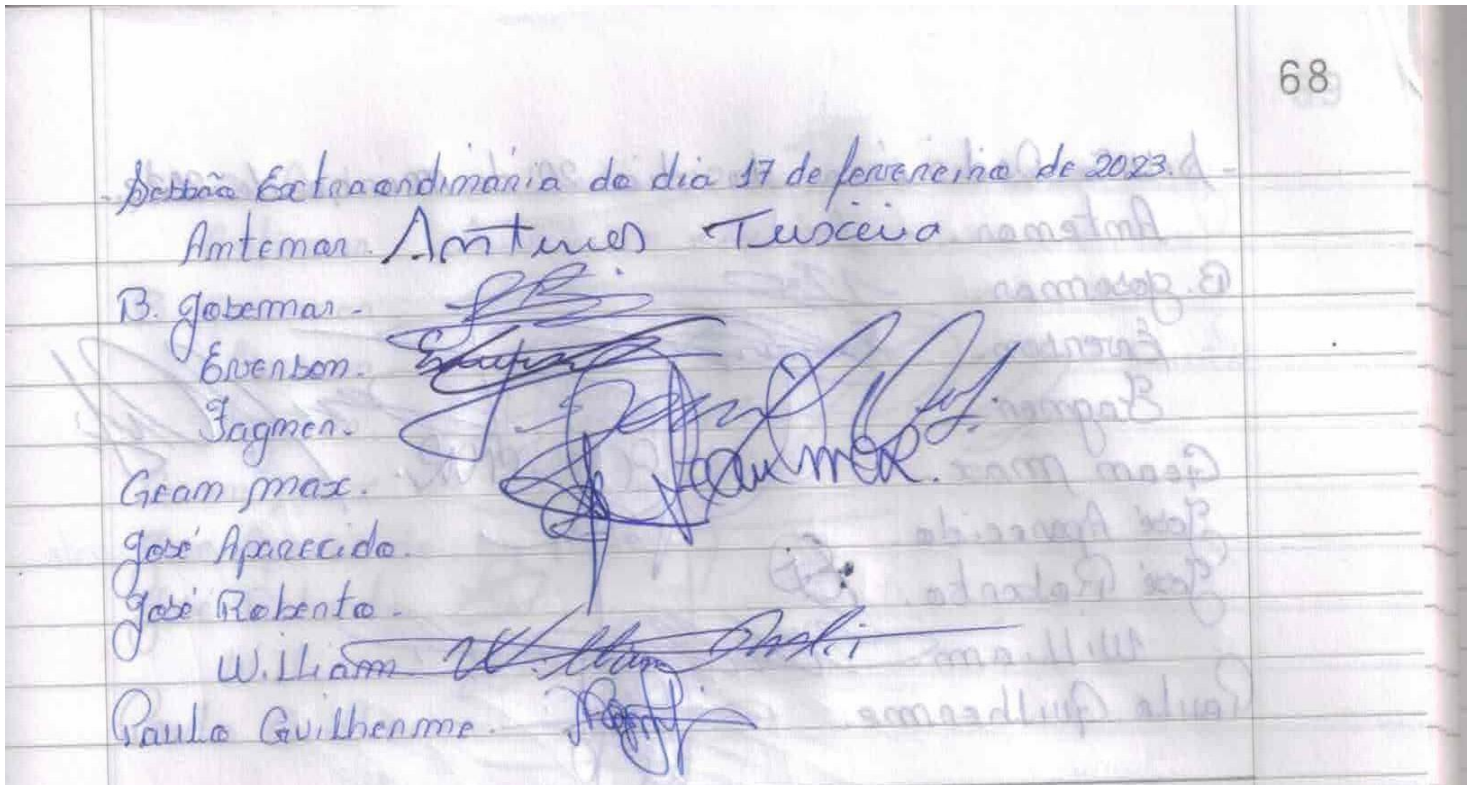 68
Sessão Extraordinária do dia 17 de fevereiro de 2023.
Antemar. Antunes Teixeira
B. Josemar.
Everson.
Fagner.
Gean max. Jean max.
José Aparecido.
José Roberto.
William William
Paulo Guilherme.